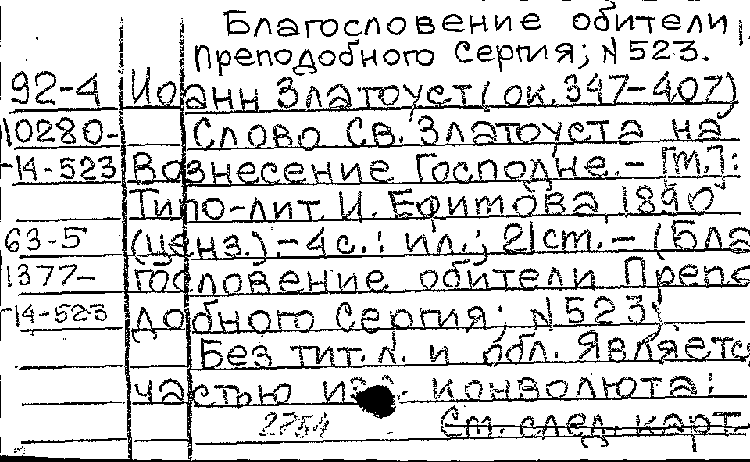 Благословение обители
Преподобного Сергия; N 523.
92-4 Иоанн Златоуст (ок. 347-407)
10280- Слово Св. Златоуста на
-14-523 Вознесение Господне. - [М.]:
Типо-лит. И. Ефимова, 1890
63-5 (ценз.). - 4 с.: ил.; 21 ст. - (Бла
1377- гословение обители Препо
-14-523 добного Сергия; N 523).
Без тит. л. и обл. Является
частью конволюта:
2754 См. след. карт